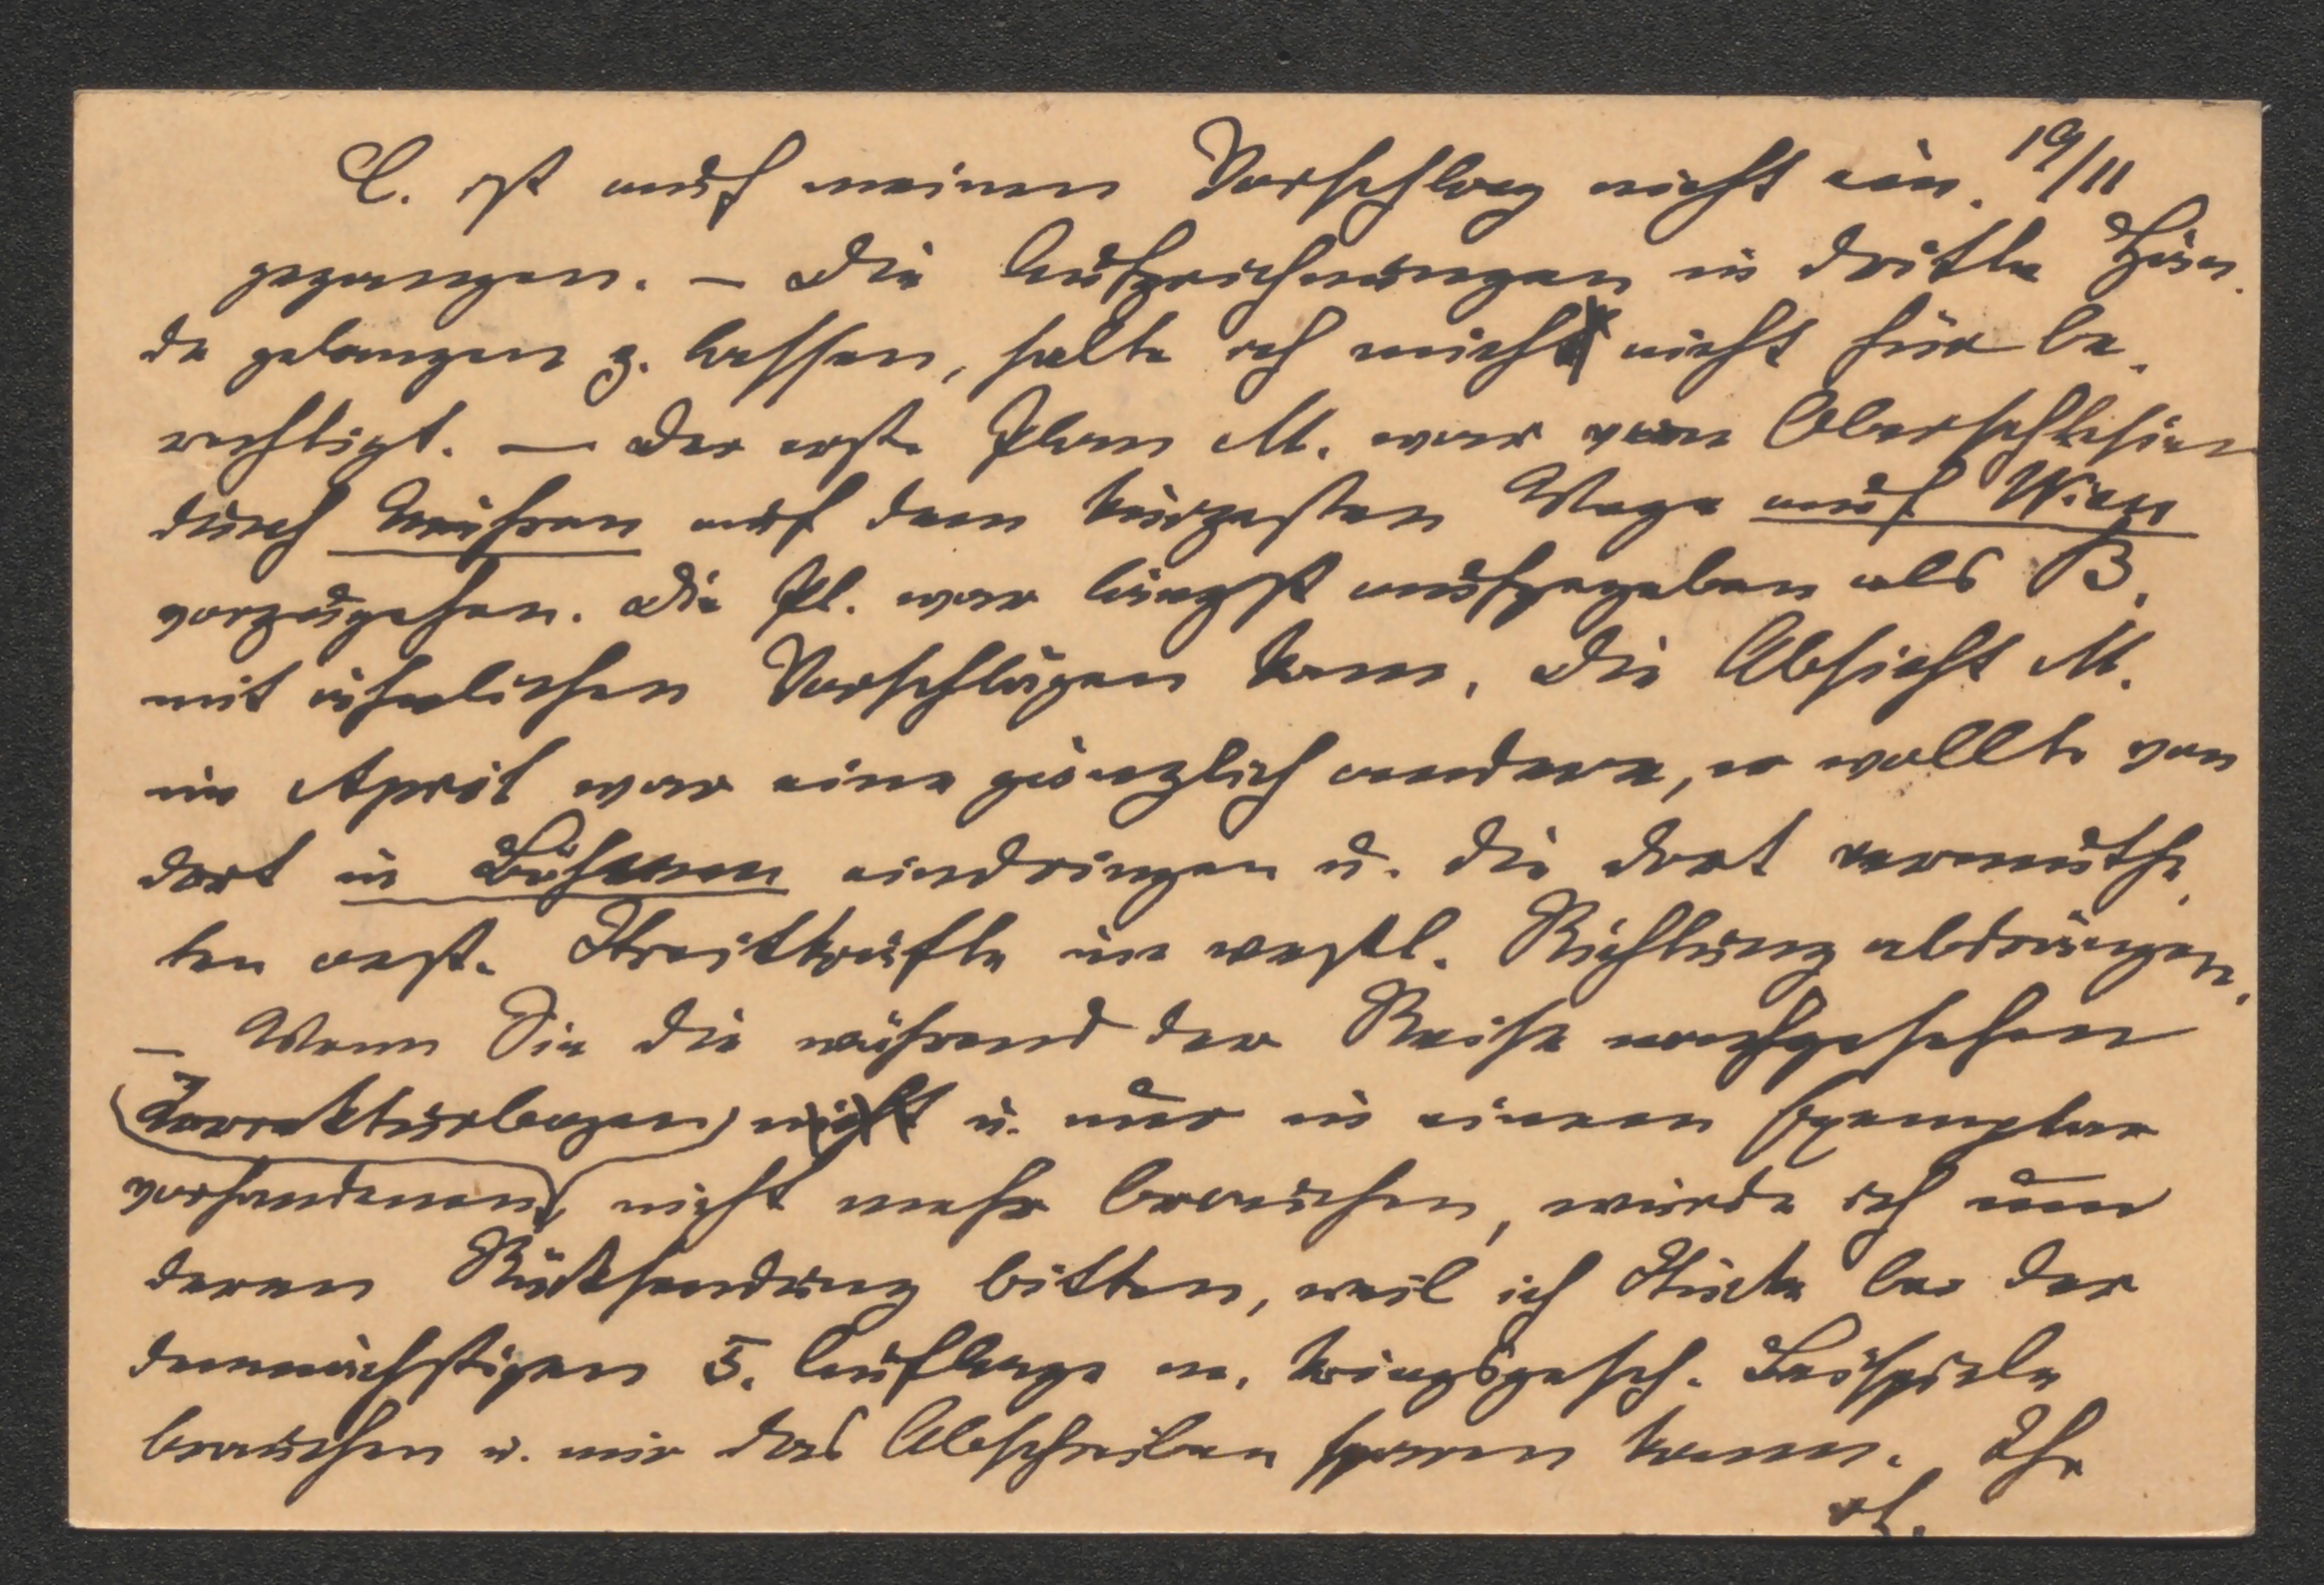 L. ist auf meinen Vorschlag nicht ein- 19/11
gegangen. – Die Aufzeichnungen in dritte Hän-
de gelangen z. lassen, halte ich mich nicht für be-
rechtigt. — Der erste Plan M. war von Oberschlesien
durch Mähren auf dem kürzesten Wege auf Wien
vorzugehen. Die Pl. war längst aufgegeben als B.
mit ähnlichen Vorschlägen kam. Die Absicht M.
im April war eine gänzlich andere, er wollte von
dort in Böhmen eindringen u. die dort vermuthe-
ten oest. Streitkräfte in westl. Richtung abdrängen.
– Wenn Sie die während der Reise nachgesehenen
Korrekturbogen nicht u. nur in einem Exemplar
vorhandenen, nicht mehr brauchen, würde ich um
deren Rücksendung bitten, weil ich Stücke bei der
demnächstigen 5. Auflage m. kriegsgesch. Beispiele
brauchen u. mir das Abschreiben sparen kann. Ihr